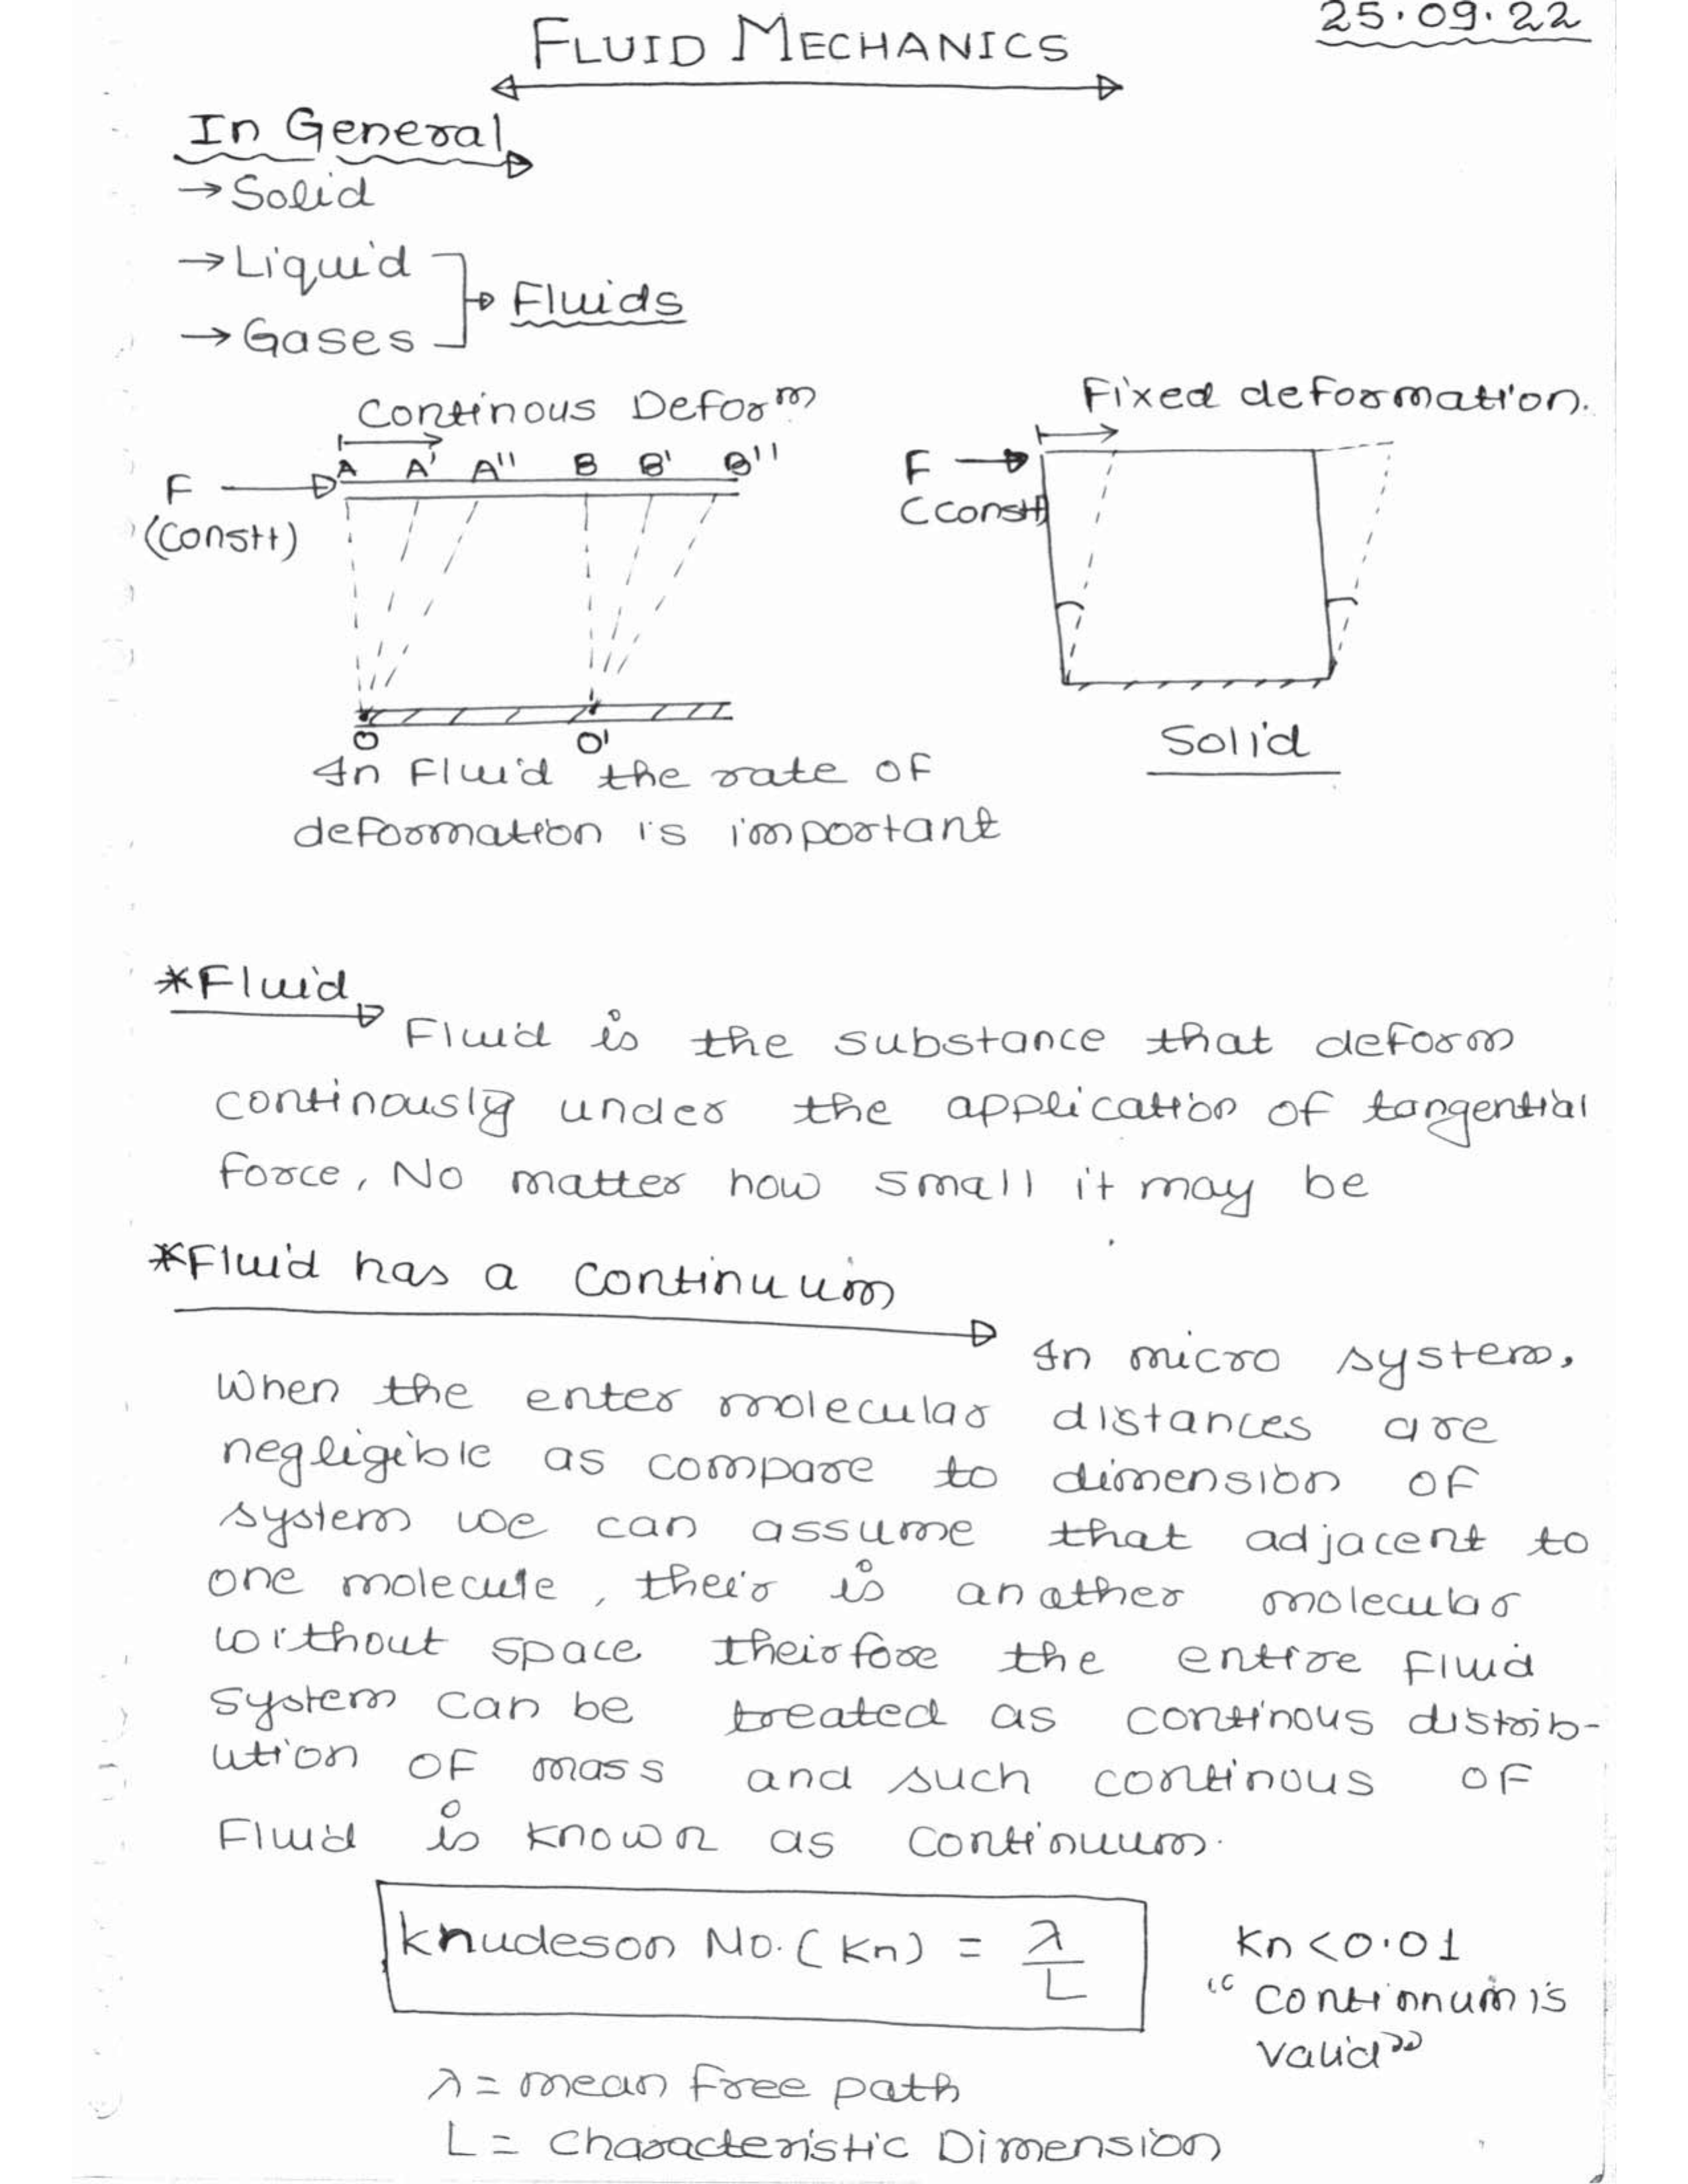 25.09.22
FLUID MECHANICS
In General
→ Solid
→ Liquid
→ Gases
Fluids
Continous Deform
A A' A'' B B' B''
F
(Constt)
O O'
In Fluid the rate of
deformation is important
Fixed deformation.
F
(constt)
Solid
*Fluid
Fluid is the substance that deform
continously under the application of tangential
force, No matter how small it may be
*Fluid has a continuum
In micro system,
When the enter molecular distances are
negligible as compare to dimension of
system we can assume that adjacent to
one molecule, their is another molecular
without space theirfore the entire fluid
system can be treated as continous distrib-
ution of mass and such continous of
Fluid is known as continuum.
knudeson No. (Kn) = λ/L
Kn < 0.01
"continnum is
valid"
λ = mean free path
L = Characteristic Dimension